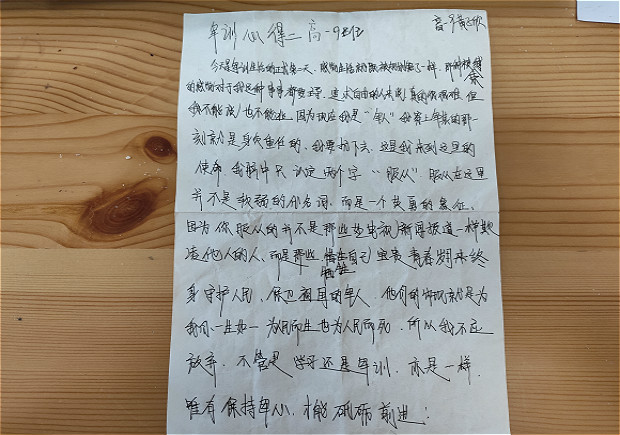 军训心得二 高一9班
高一9黄欣
今天是军训生活的正式第一天,感觉生活相较被绑住了一样,那种被缚
的感觉对于我这种事事都要主宰,追求自由的人来说真的很难但
我不能放弃也不能退,因为现在我是"军人"我穿上军装的那一
刻就是身负重任的,我要扛下去,这是我来到这里的
使命,我脑中只认定两个字"服从",服从在这里
并不是我弱的代名词,而是一个英勇的象征。
因为你服从的并不是那些电视新闻报道一样欺
凌他人的人,而是那些牺牲自己宝贵青春期来终
身守护人民,保卫祖国的军人,他们的出现就是为
我们一生如一 为人民而生也为人民而死,所以我不应
放弃,不管是学习还是军训,亦是一样,
唯有保持本心,才能砥砺前进!